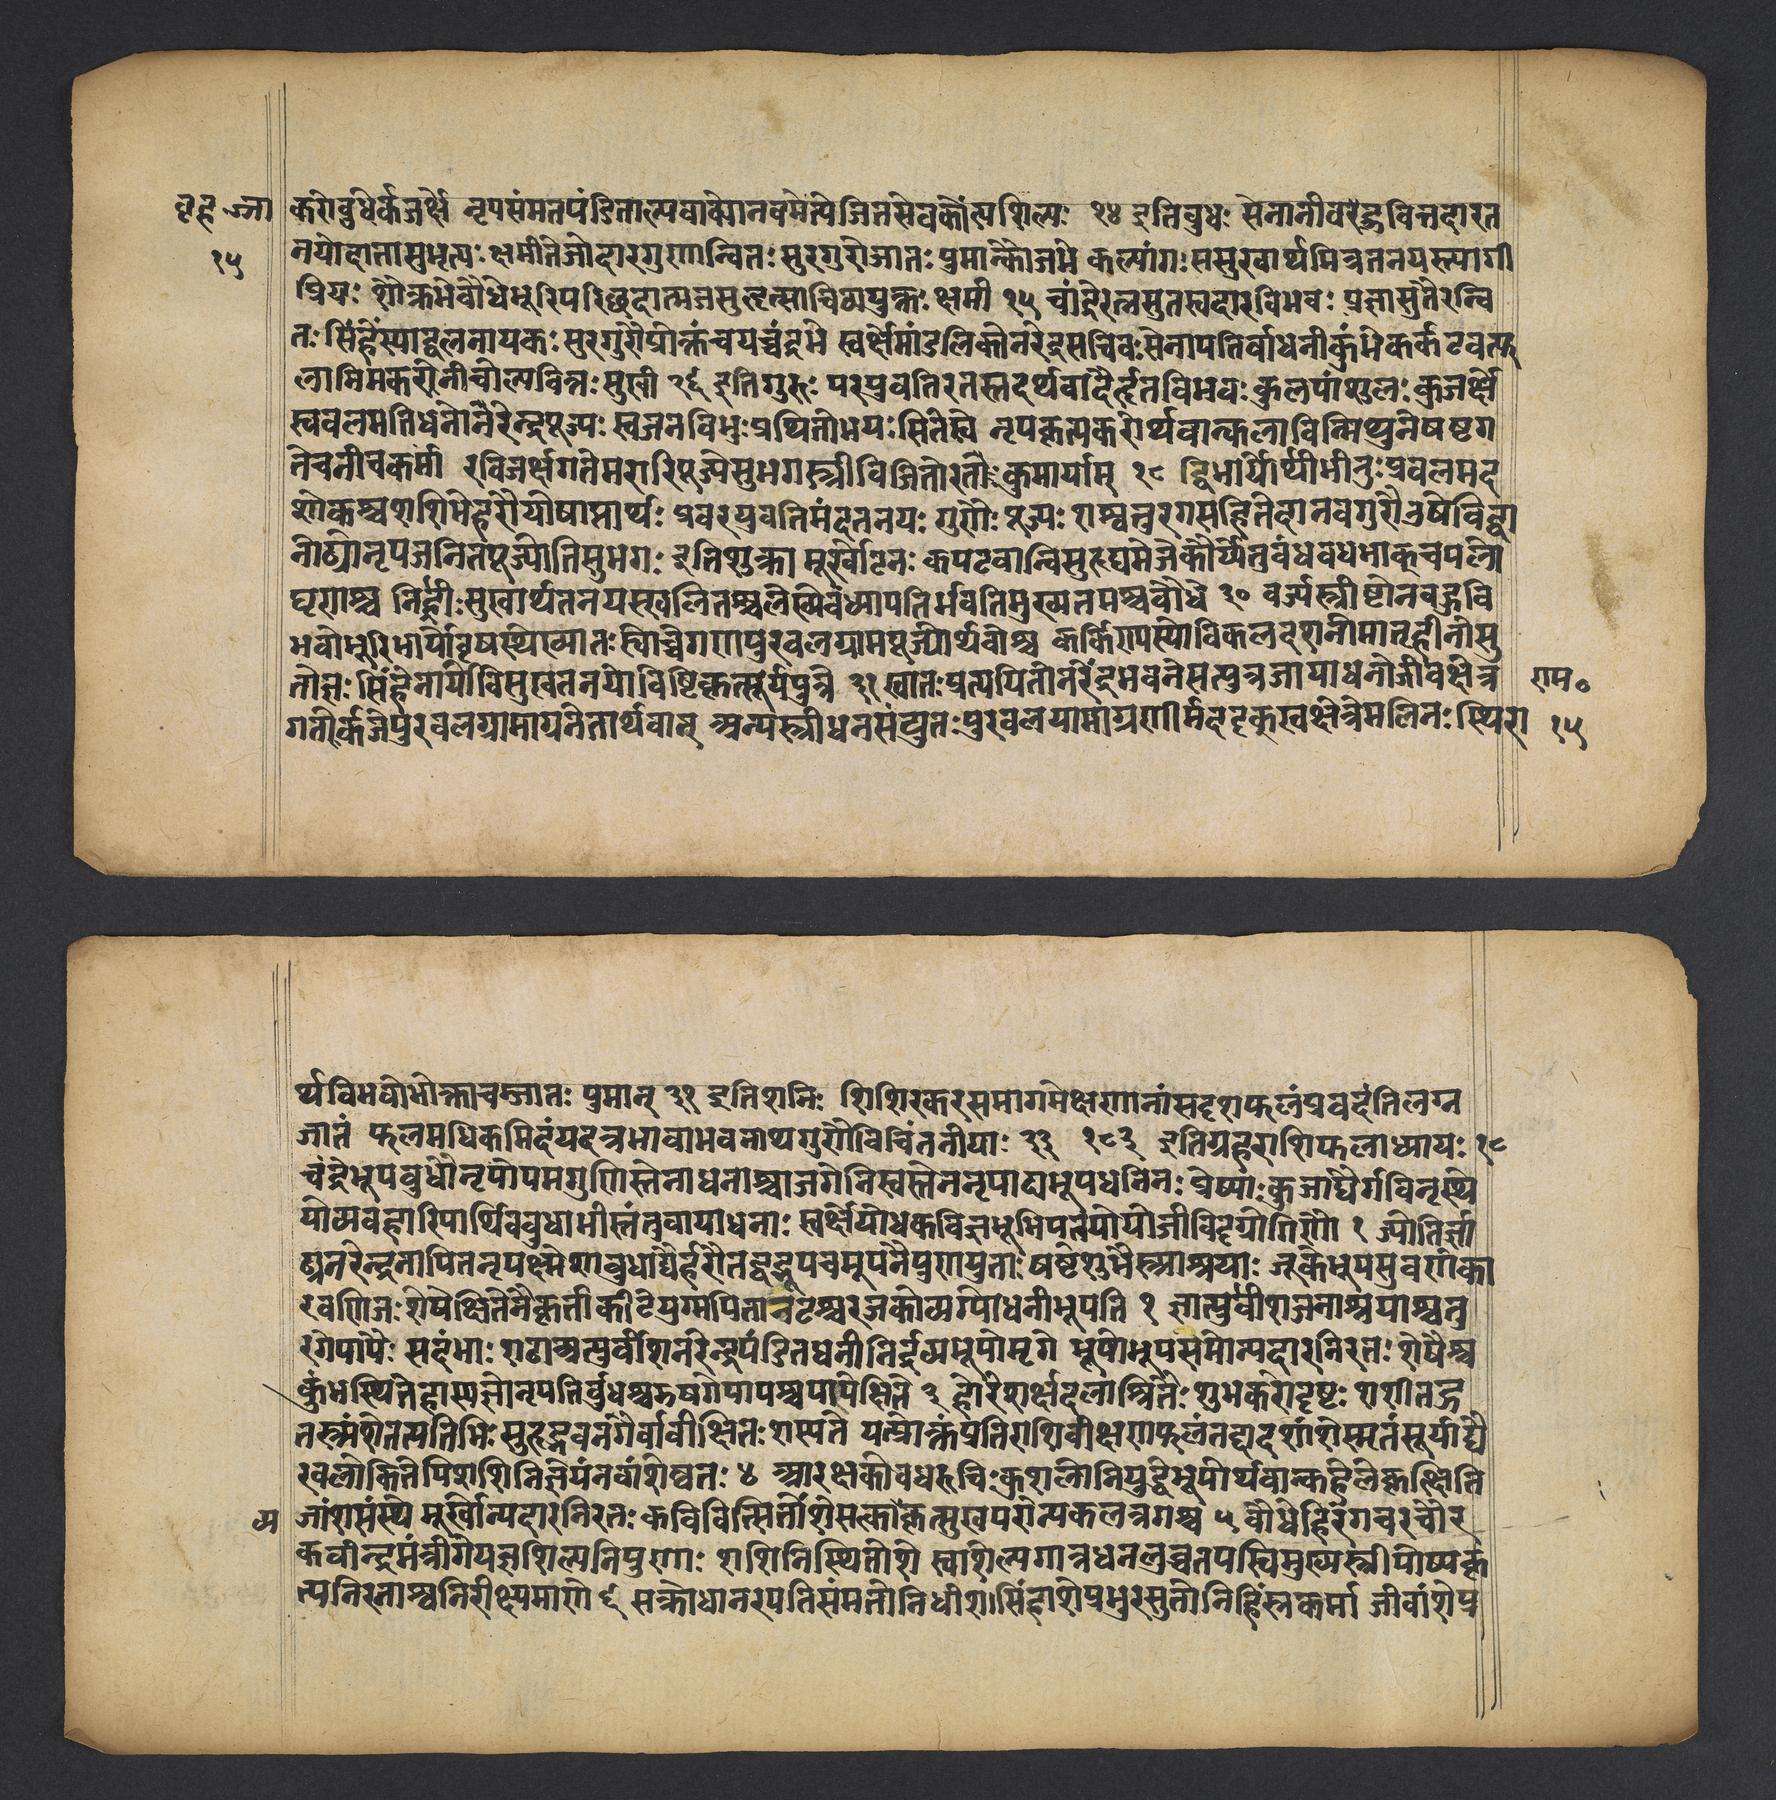 बृह ज्जा करोबुधेर्कजर्क्षे नृपसंमतपंडिताल्पवाक्योनवमेत्पेजितसेवकोंत्यशिल्पः १४ इतिबुधः सेनानीबरहुवित्तदारत
१५ नयोदातासुभृत्यः क्षमीतेजोदारगुणान्वितः सुरगुरोजातः पुमान्कौजभे कल्पांगः ससुखार्थमित्रतनयस्त्यागी
प्रियः शौक्रभेबौधेभूरिपरिछदात्मजसुहृत्साचिव्ययुक्तः क्षमी १५ चांद्रेरत्नसुतस्वदारविभवः प्रज्ञासुखैरन्वि
तः सिंहेस्याद्वलनायकः सुरगुरौप्रोक्तंचयच्चंद्रभे स्वर्क्षेमांडलिकोनरेंद्रसचिवःसेनापतिर्वाधनीकुंभेकर्कटवत्फ
लानिमकरेनीचोल्पवित्तः सुखी १६ इतिगुरुः परयुवतिरतस्तदर्थवादैर्हृतविभवः कुलपांशुलः कुजर्क्षे
स्वबलमतिधनोनरेन्द्रपूज्यः स्वजनविभुःप्रथितोभयः सितेस्वे नृपकृत्यकरोर्थवान्कलाविन्मिथुनेषष्टग
तेचनीचकर्मा रविजर्क्षगतेमरारिपूज्येसुभगस्त्रीविजितोरतौ कुमार्याम् १९ द्विभार्योर्थीभीरुःप्रबलमद
शोकश्चशशिभेहरौयोषाप्तार्थः प्रवरयुवतिमंदतनयः गुणैः पूज्यः शश्वत्तुरगसहितेदानवगुरौझषेविद्वा
नाढ्योनृपजनितपूज्योतिसुभगः इतिशुक्रा मूर्खोटनः कपटवान्विसुहृद्यमेजेकौर्प्येतुबंधवधभाक्चपलो
घृणाश्च निर्ह्रीःसुखार्थतनयस्खलितश्चलेख्येबंध्यापतिर्भवतिमुख्यतमश्चबौधे ३० वर्ज्यस्त्रीष्टोनबहुवि
भवोभूरिभार्योवृषस्थेख्यातः स्वोच्चेगणपुरबलग्रामपूज्योर्थवांश्च कर्किण्यस्वोविकलदशनोमातृहीनोसु
तोज्ञः सिंहेनार्योविसुखतनयोविष्टिकृत्सूर्यपुत्रे ३१ स्वातःप्रत्ययितोनरेंद्रभवनेसत्पुत्रजायाधनोजीवक्षेत्र राम०
गतेर्कजेपुरबलग्रामाग्रनेतार्थवान् अन्यस्त्रीधनसंवृतःपुरबलग्रामाग्रणीर्मंददृक्स्वक्षेत्रेमलिनः स्थिरा १५
र्थविभवोभोक्ताचजातः पुमान् ३२ इतिशनिः शिशिरकरसमागमेक्षणानांसदृशफलंप्रवदंतिलग्न
जातं फलमधिकमिदंयदत्रभावाभवनभनाथगुणैर्विचिंतनीयाः ३३ १९३ इतिग्रहराशिफलाध्यायः १९
चंद्रेभूपबुधौनृपोपमगुणीस्तेनोधनाश्चाजगेनिस्वस्तेननृपाढ्यभूपधनिनः प्रेष्याःकुजाद्यैर्गविनृस्थे
योव्यवहारिपार्थिवबुधाभीस्तंतुवायोधनाः स्वर्क्षेयोधकविज्ञभूमिपतयोयोजीविदृग्रोगिणौ १ ज्योतिर्ज्ञा
ढ्यनरेन्द्रनापितनृपक्ष्मेशाबुधाद्यैर्हरौतद्वद्भूपचमूपनैपुणयुताः षष्टेशुभैस्त्र्याश्रयाः जूकेभूपसुवर्णका
रवणिजःशेषेक्षितेनैकृतीकीटेयुग्मपितानटश्चरजकोव्यंगोधनीभूपति १ ज्ञात्युर्वीशजनाश्रयाश्चतु
रगेपापैः सदंभाः शठाश्चात्युर्वीशनरेन्द्रपंडितधनीनिर्द्रव्यभूपोमृगे भूपोभूपसमोन्यदारनिरतः शेषैश्च
कुंभस्थितेहास्यज्ञोनृपतिर्बुधश्चझषगेपापश्चपापेक्षिते ३ होरेशर्क्षदलाश्रितैःशुभकरोदृष्टः शशीतद्ग
तस्त्र्यंशेतत्पतिभिःसुहृद्भवनगैर्वावीक्षितःशस्यते यत्प्रोक्तंप्रतिराशिवीक्षणफलंतद्वादशांशेस्मृतंसूर्याद्यै
रवलोकितेपिशशिनिज्ञेयंनवांशेष्वतः ४ आरक्षकोवधरुचिःकुशलोनियुद्धेभूपोर्थवान्कलहकृत्क्षिति
व्य जांशसंस्थे मूर्खोन्यदारनिरतः कविवित्सितांशेसत्काव्यकृत्सुखपरोन्यकलत्रगश्च ५ बौधेहिरंगचरचौर
कवीन्द्रमंत्रीगेयज्ञशिल्पनिपुणाः शशिनिस्थितेंशे स्वांशेल्पगात्रधनलुब्धतपस्विमुख्यस्त्रीपोष्यकृ
त्यनिरताश्चनिरीक्ष्यमाणे ६ सक्रोधोनरपतिसंमतोनिधीशःसिंहांशेप्रभुरसुतोनिहिंस्रकर्मा जीवांशेप्र